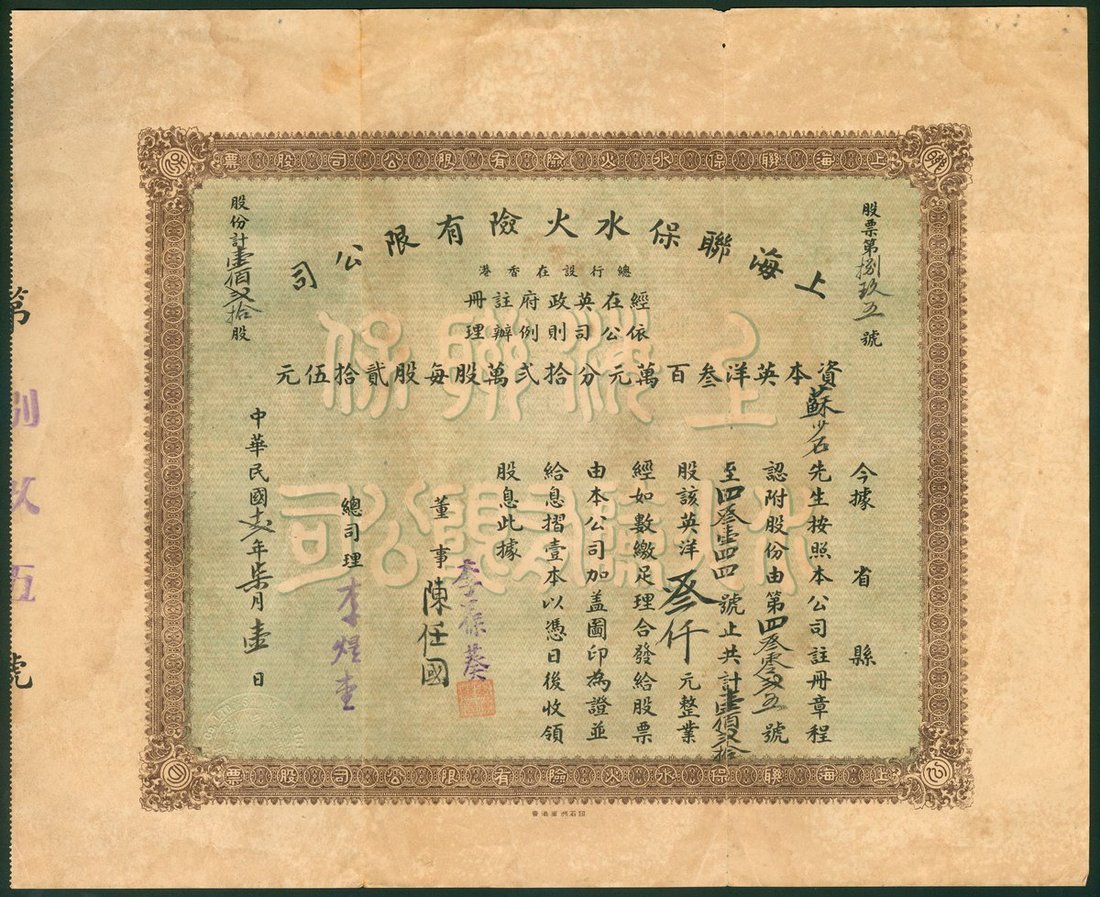 上海聯保水火險有限公司股票
股票第捌玖五號
上海聯保水火險有限公司
總行設在香港
經在英政府註冊
依公司則例辦理
資本英洋叁百萬元分拾弍萬股每股貳拾伍元
股份計壹佰弍拾股
上海聯保
今據 省 縣
蘇少石先生按照本公司註冊章程
認附股份由第四叁零弍五號
至四叁壹四四號止共計壹佰弍拾
股該英洋叁仟元整業
經如數繳足理合發給股票
由本公司加盖圖印為證並
給息摺壹本以憑日後收領
股息此據
董事 李葆葵
陳任國
總司理 李煜堂
中華民國 年柒月壹日
第捌玖五號
上海聯保水火險有限公司股票